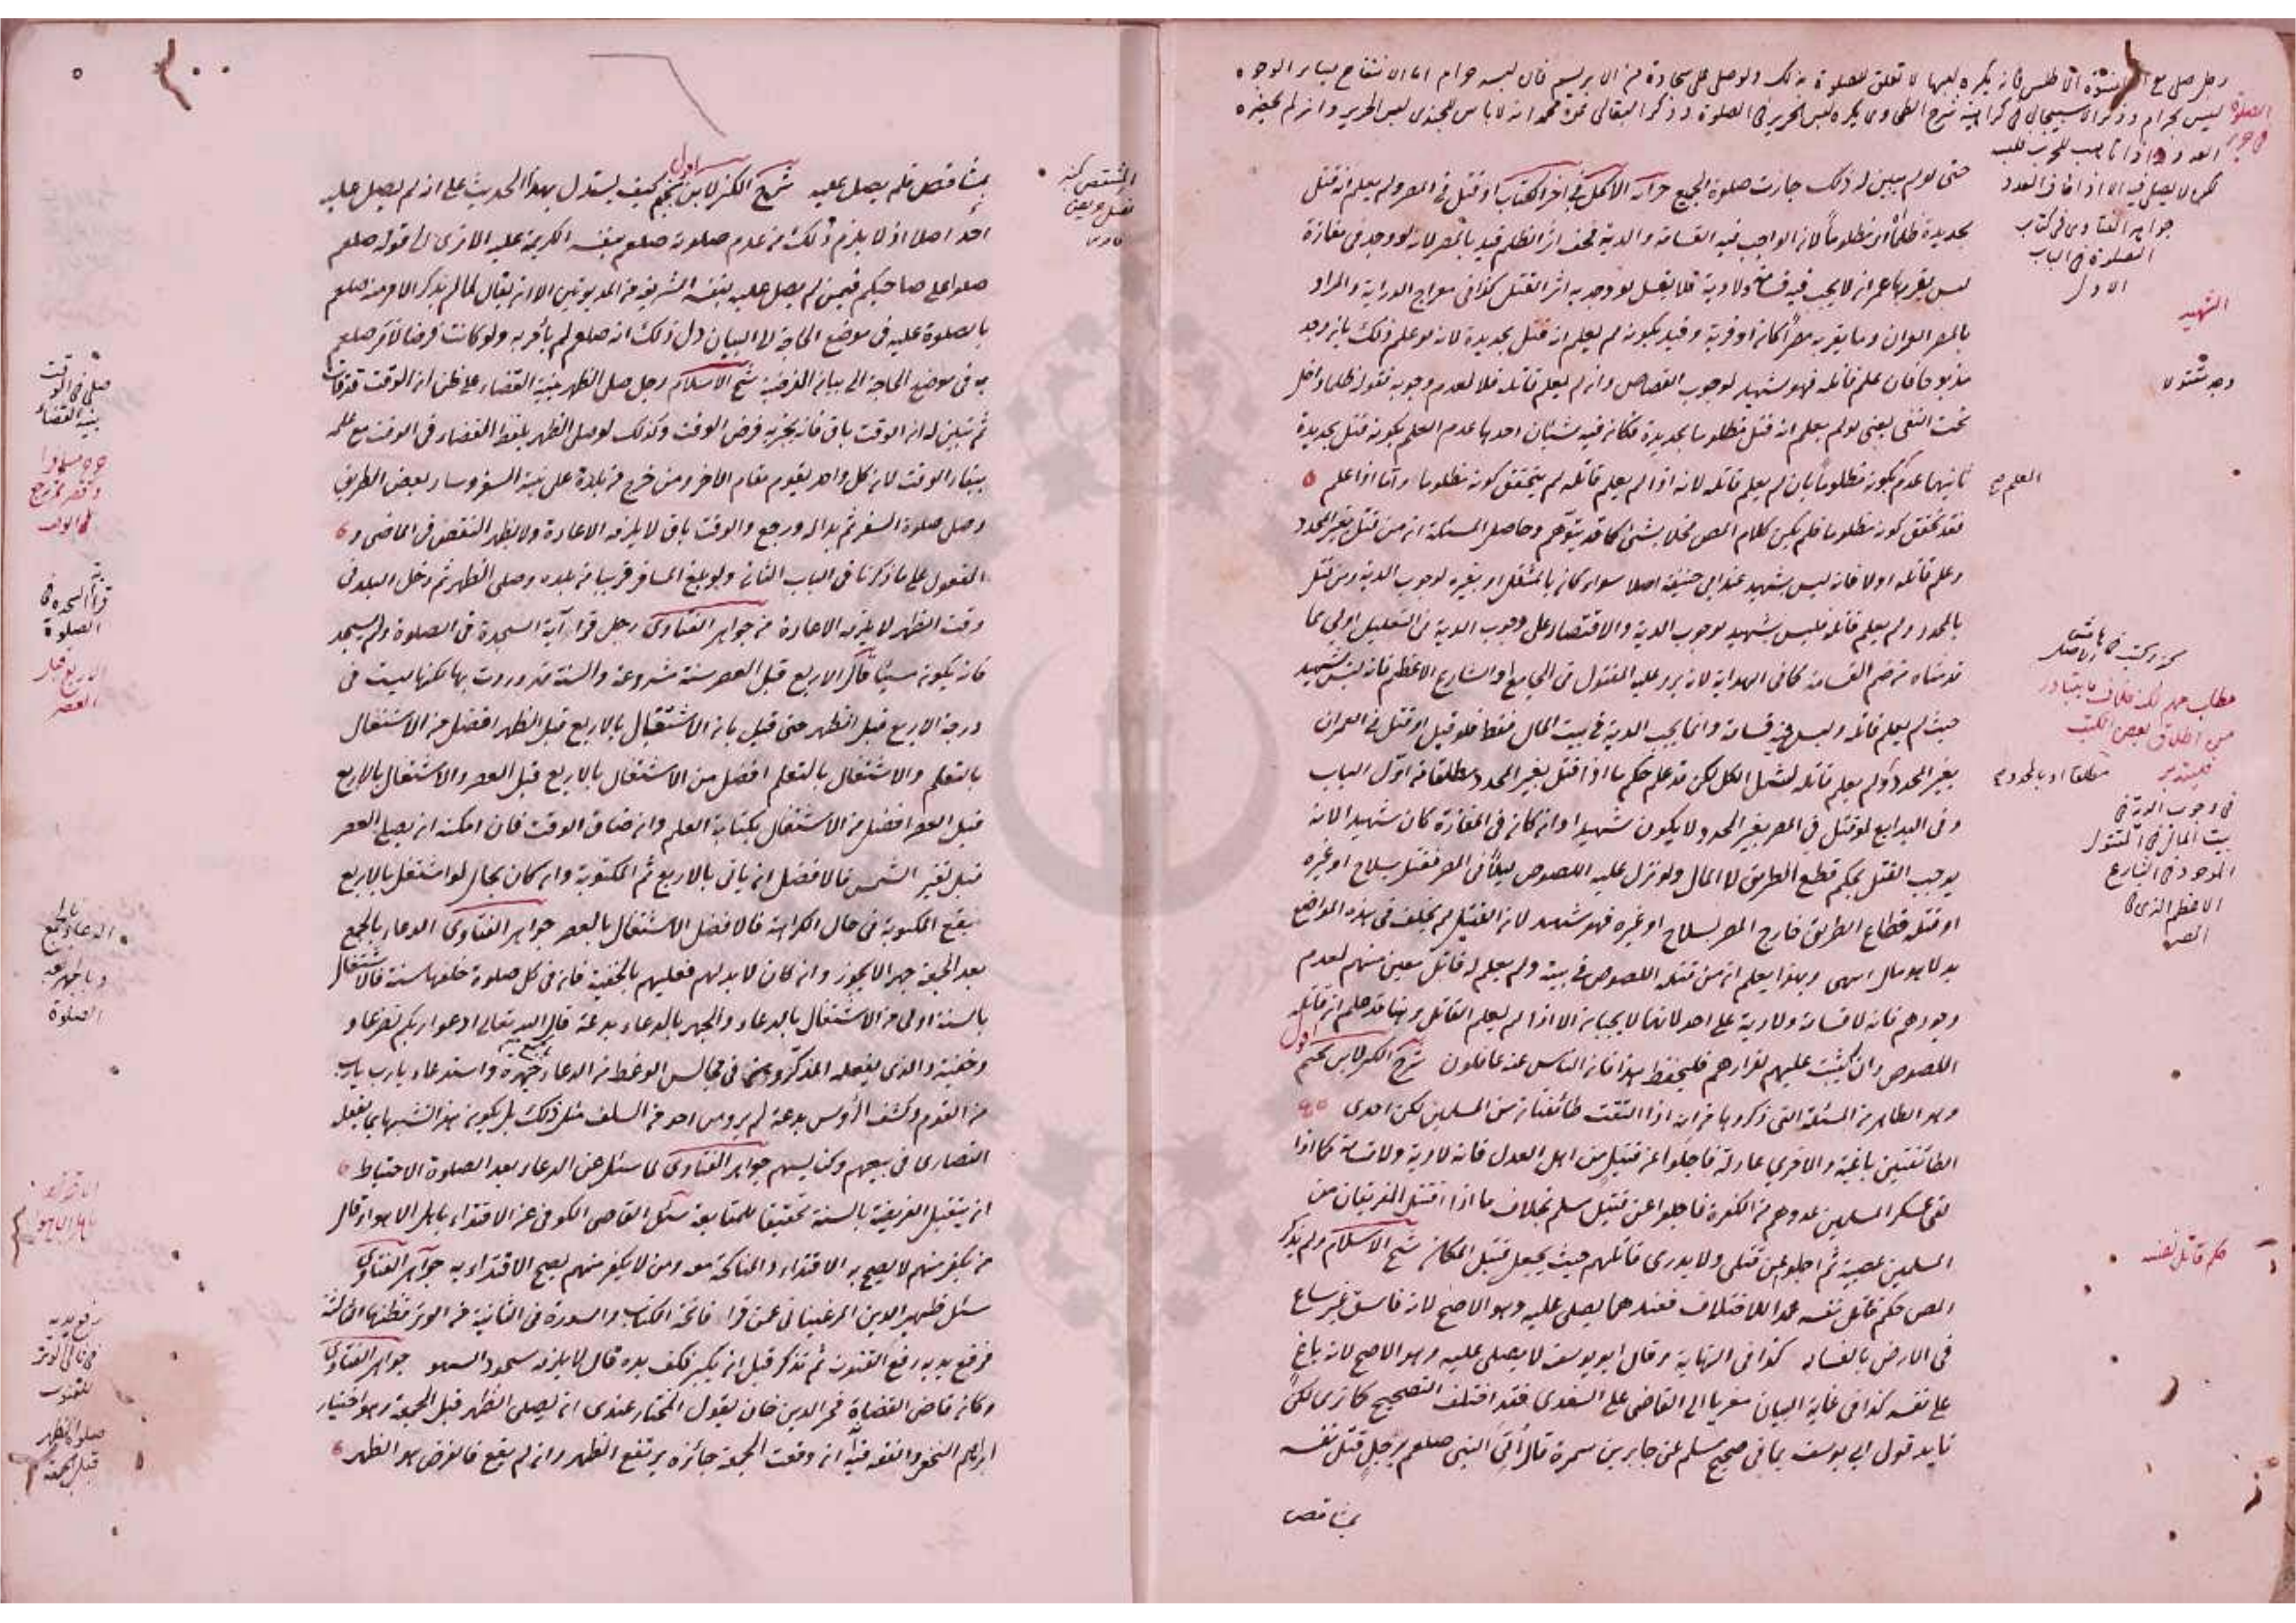 حتى لو لم يبين له ذلك جازت صلوة الجميع خزانة الاكمل في آخر الكتاب او قتل في المصر ولم يعلم انه قتل
بحديدة ظلما او مظلوما لان الواجب فيه القسامة والدية فخف اثر الظلم قيد بالمصر لانه لو وجد في مفازة
ليس بقربها عمران لا يجب فيه قسامة ولا دية فلا يغسل لو وجد به اثر القتل كذا في معراج الدراية والمراد
بالمصر العمران وما بقربه مصرا كان او قرية وقيد بكونه لم يعلم انه قتل بحديدة لانه لو علم ذلك بان وجد
مذبوحا فان علم قاتله فهو شهيد لوجوب القصاص وان لم يعلم قاتله فلا لعدم وجوبه فقوله ظلما داخل
تحت النفي يعني لو لم يعلم انه قتل مظلوما بحديدة فكان فيه شيئان احدهما عدم العلم بكونه قتل بحديدة
ثانيهما عدم كونه مظلوما بان لم يعلم قاتله لانه اذا لم يعلم قاتله لم يتحقق كونه مظلوما واما اذا علم
فقد تحقق كونه مظلوما فلم يكن كلام المص مخلا بشئ كما قد يتوهم وحاصل المسئلة ان من قتل بغير المحدد
وعلم قاتله اولا فانه ليس بشهيد عند ابي حنيفة اصلا سواء كان بالمثقل او بغيره لوجوب الدية ومن قتل
بالمحدد ولم يعلم قاتله فليس بشهيد لوجوب الدية والاقتصار على وجوب الدية في التعليل اولى مما
قدمناه من ضم القسامة كما في الهداية لانه يرد عليه المقتول في الجامع او الشارع الاعظم فانه ليس بشهيد
حيث لم يعلم قاتله وليس فيه قسامة وانما يجب الدية في بيت المال فقط فلو قيل او قتل في العمران
بغير المحدد او لم يعلم قاتله لشمل الكل لكن قد علم حكم ما اذا قتل بغير المحدد مطلقا من اول الباب
وفي البدايع لو قتل في المصر بغير المحدد لا يكون شهيدا وان كان في المفازة كان شهيدا لانه
يوجب القتل بحكم قطع الطريق لا المال ولو نزل عليه اللصوص ليلا في المصر فقتل بسلاح او غيره
او قتله قطاع الطريق خارج المصر بسلاح او غيره فهو شهيد لان القتيل لم يخلف في هذه المواضع
بدلا هو مال انتهى وبهذا يعلم ان من قتله اللصوص في بيته ولم يعلم له قاتل معين منهم لعدم
وجودهم فانه لا قسامة ولا دية على احد لانهما لا يجبان الا اذا لم يعلم القاتل وهنا قد علم ان قاتله
اللصوص وان لم يثبت عليهم لفرارهم فليحفظ هذا فان الناس عنه غافلون شرح الكنز لابن نجيم
وهو الظاهر من المسئلة التي ذكروها من انه اذا التقت طائفتان من المسلمين لكن احدى
الطائفتين باغية والاخرى عادلة فاجلوا عن قتيل من اهل العدل فانه لا دية ولا قسامة كما اذا
لقي عسكر المسلمين عدوهم من الكفرة فاجلوا عن قتيل مسلم بخلاف ما اذا اقتتل الفريقان من
المسلمين عصبية ثم اجلوا عن قتلى ولا يدرى قاتلهم حيث يجعل قتيل المكان شيخ الاسلام ولم يذكر
المص حكم قاتل نفسه عمدا للاختلاف فعندهما يصلى عليه وهو الاصح لانه فاسق غير ساع
في الارض بالفساد كذا في النهاية وقال ابو يوسف لا يصلى عليه وهو الاصح لانه باغ
على نفسه كذا في غاية البيان معزيا الى القاضي علي السغدي فقد اختلف التصحيح كما ترى لكن
تايد قول ابي يوسف بما في صحيح مسلم عن جابر بن سمرة قال اتي النبي صلعم برجل قتل نفسه
بمشاقص
الشهيد
حكم قاتل نفسه
بمشاقص فلم يصل عليه شرح الكنز لابن نجيم كيف يستدل بهذا الحديث على انه لم يصل عليه
احد اصلا اذ لا يلزم ذلك من عدم صلوته صلعم بنفسه الكريمة عليه الا ترى الى قوله صلعم
صلوا على صاحبكم فيمن لم يصل عليه بنفسه الشريفة من المديونين الا ان يقال لما لم يذكر الامر منه صلعم
بالصلوة عليه في موضع الحاجة الى البيان دل ذلك انه صلعم لم يأمر به ولو كانت فرضا لأمر صلعم
به في موضع الحاجة الى بيان الفرضية شيخ الاسلام رجل صلى الظهر بنية القضاء على ظن ان الوقت قد فات
ثم تبين له ان الوقت باق فانه يجزيه فرض الوقت وكذلك لو صلى الظهر بلفظ القضاء في الوقت مع علمه
ببقاء الوقت لان كل واحد يقوم مقام الآخر ومن خرج من بلدة على نية السفر وسار بعض الطريق
وصلى صلوة السفر ثم بدا له ورجع والوقت باق لا يلزمه الاعادة ولا يظهر النقض في الماضي و
المفعول على ما ذكرنا في الباب الثاني ولو بلغ المسافر قريبا من بلده وصلى الظهر ثم دخل البلد في
وقت الظهر لا يلزمه الاعادة من جواهر الفتاوى رجل قرا آية السجدة في الصلوة ولم يسجد
فانه يكون مسيئا قال الاربع قبل العصر سنة مشروعة والسنة قد وردت بها لكنها ليست في
درجة الاربع قبل الظهر حتى قيل بان الاشتغال بالاربع قبل الظهر افضل من الاشتغال
بالتعلم والاشتغال بالتعلم افضل من الاشتغال بالاربع قبل العصر والاشتغال بالاربع
قبل العصر افضل من الاشتغال بكتابة العلم وان ضاق الوقت فان امكنه ان يصلي العصر
قبل تغير الشمس فالافضل ان ياتي بالاربع ثم المكتوبة وان كان بحال لو اشتغل بالاربع
يقع المكتوبة في حال الكراهة فالافضل الاشتغال بالعصر جواهر الفتاوى الدعاء بالجمع
بعد الجمعة جهرا لا يجوز وان كان لا بد لهم فعليهم بالخفية فانه في كل صلوة خلفها سنة فالاشتغال
بالسنة اولى من الاشتغال بالدعاء والجهر بالدعاء بدعة قال الله تعالى ادعوا ربكم تضرعا و
وخفية والذي يفعله المذكرون في مجالس الوعظ من الدعاء جهرة واستدعاء يا رب يا رب
من القوم وكشف الرؤس بدعة لم يرو من احد من السلف مثل ذلك بل يكون هذا تشبها بما يفعله
النصارى في بيعهم وكنايسهم جواهر الفتاوى لما سئل عن الدعاء بعد الصلوة الاحتياط
ان يتقبل الفريضة بالسنة تحقيقا للمتابعة سئل القاضي الكوفي عن الاقتداء باهل الاهواء قال
من يكفر منهم لا يصح به الاقتداء والمناكحة معه ومن لا يكفر منهم يصح الاقتداء به جواهر الفتاوى
سئل ظهير الدين المرغيناني عمن قرا فاتحة الكتاب والسورة في الثانية من الوتر فظنها الثالثة
فرفع يديه رفع القنوت ثم تذكر قبل ان يكبر فكف يده قال لا يلزمه سجود السهو جواهر الفتاوى
وكان قاضي القضاة فخر الدين خان يقول المختار عندي ان يصلي الظهر قبل الجمعة وهو اختيار
ابراهيم النخعي والفقه فيه ان وقعت الجمعة جائزة يرتفع الظهر وان لم يقع فالفرض هو الظهر
صلى في الوقت
بنية القضاء